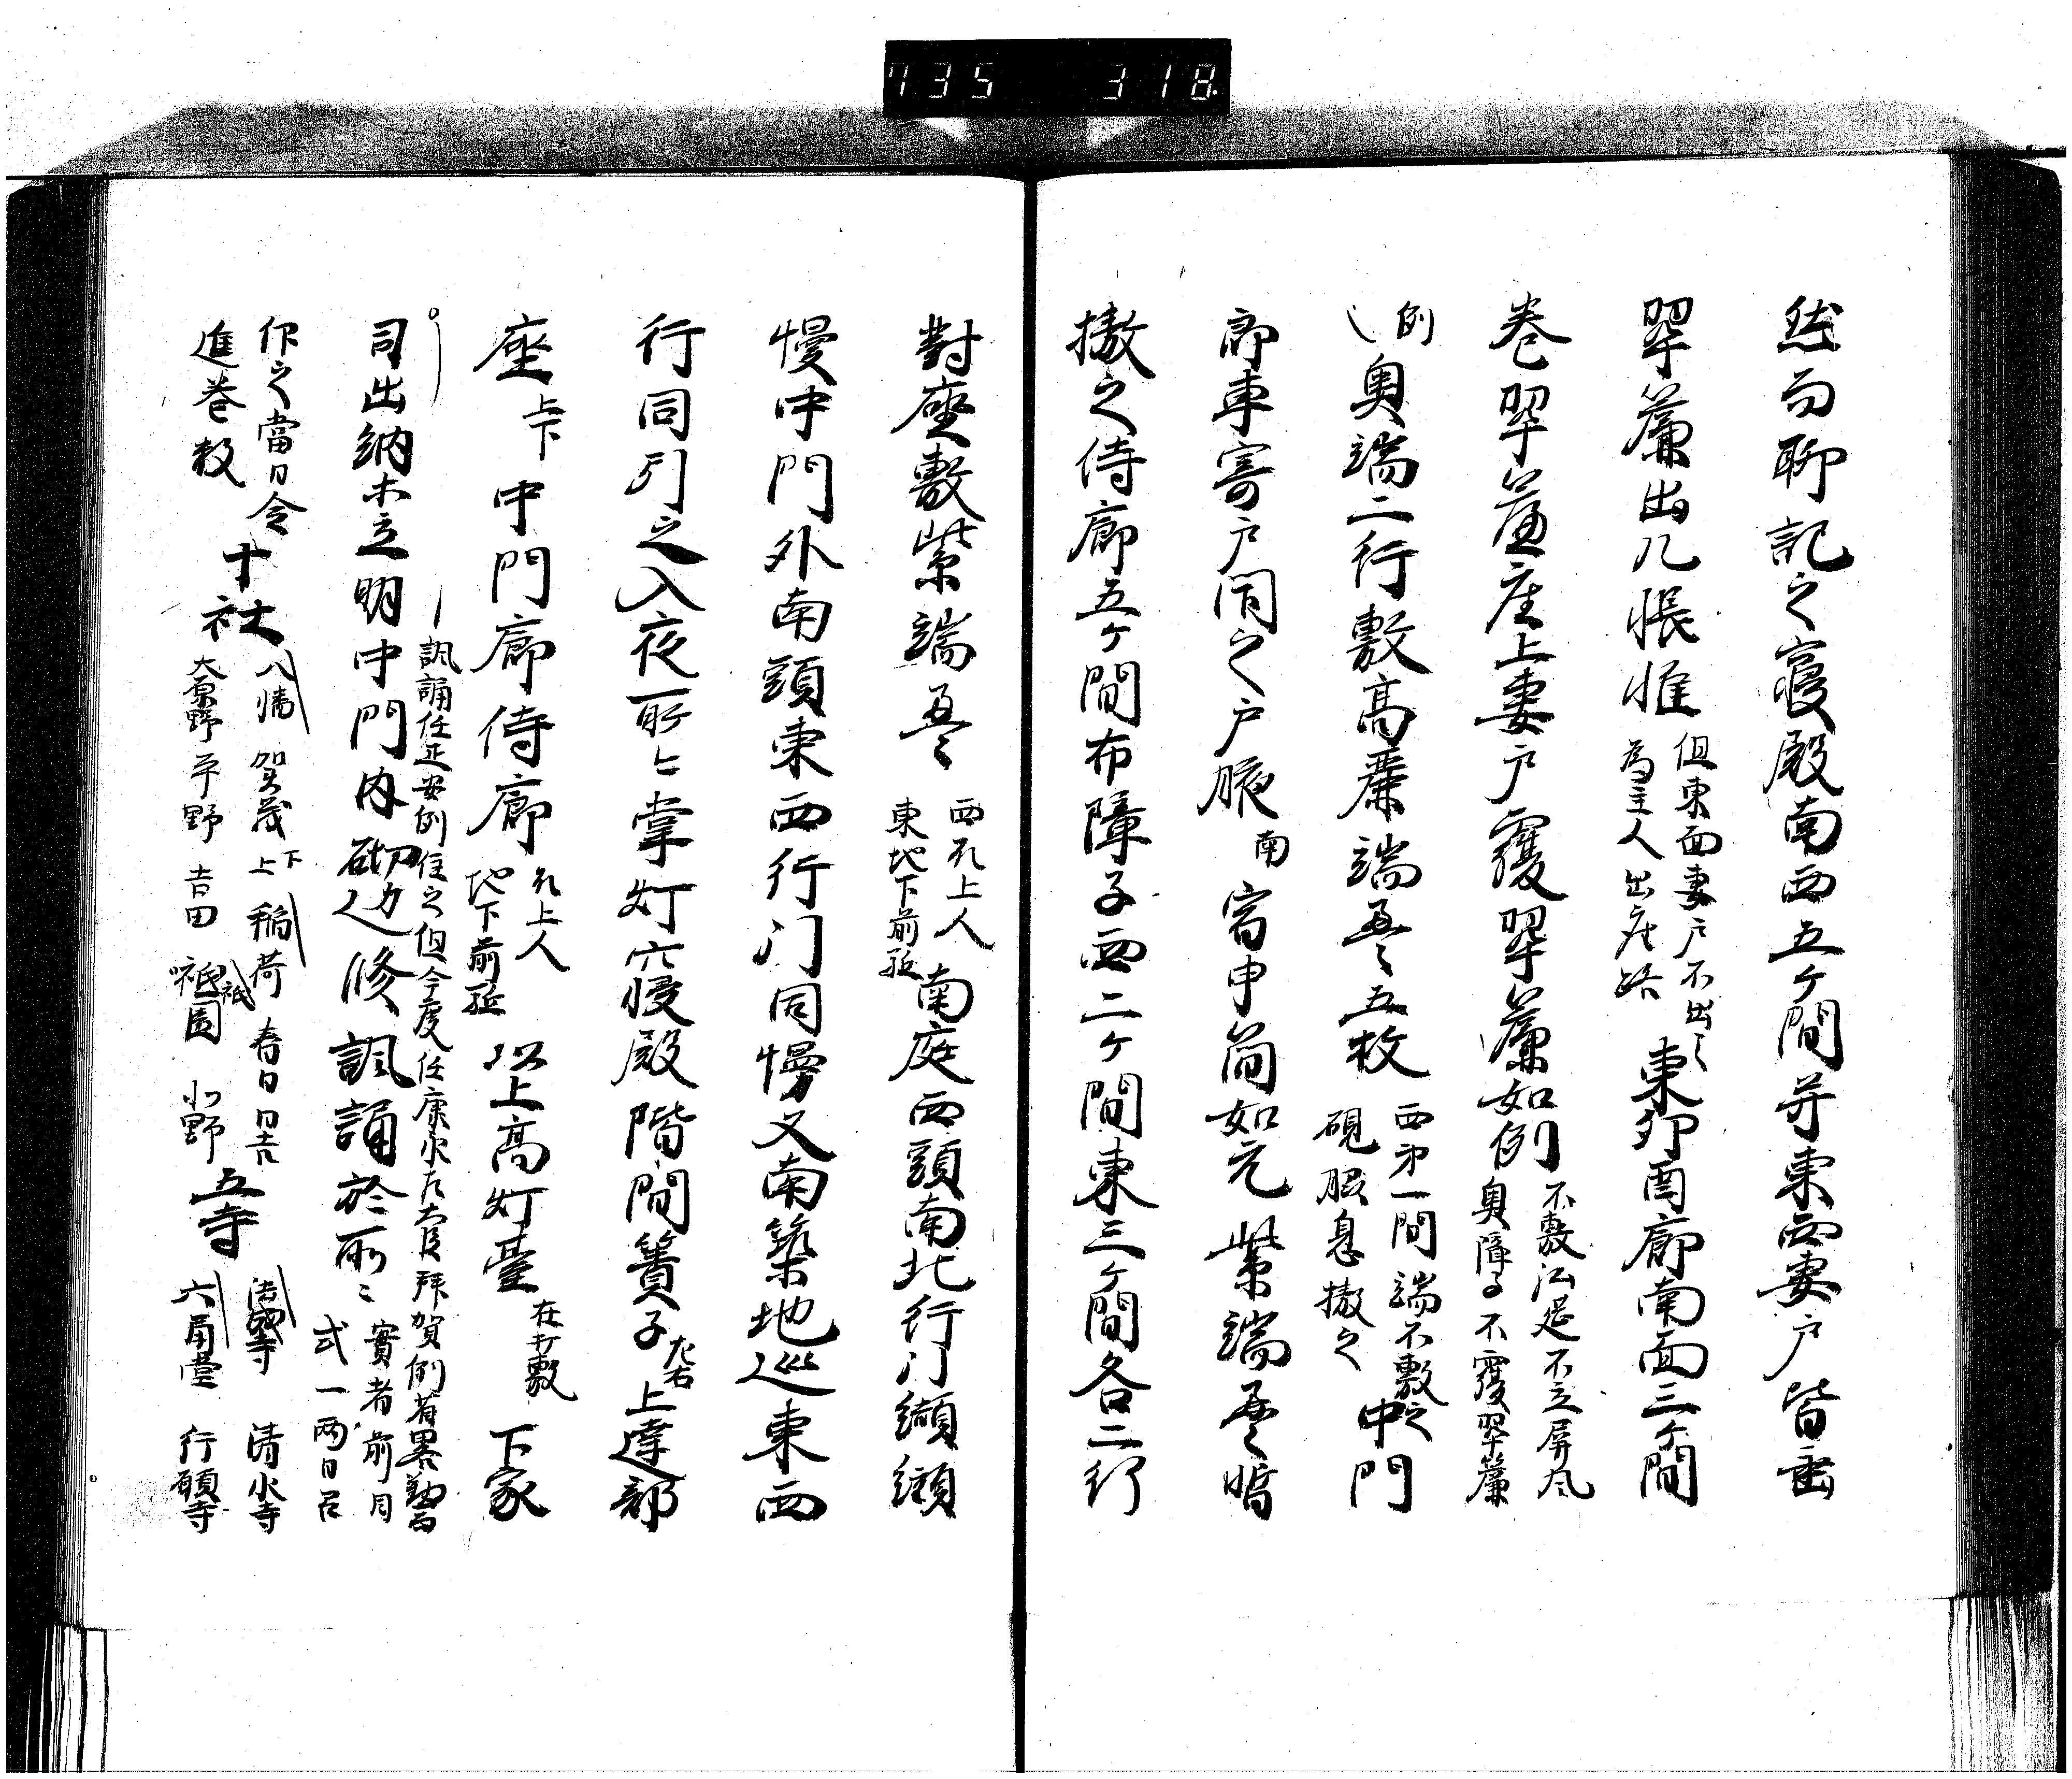 735 318
然而聊記之寝殿南西五ケ間并東西妻戸皆垂
翠簾出几帳帷但東面妻戸不出之為主人出座路東卯酉廊南面三ケ間
巻翠簾座上妻戸覆翠簾如例不敷弘莚不立屏風奥障子不覆翠簾
例奥端二行敷高麗端畳五枚西第一間端不敷之硯脇息撤之中門
廊車寄戸閇之戸腋南宿申簡如元紫端畳
撤之侍廊五ケ間布障子西二ケ間東三ケ間各二行
對座敷紫端畳西殿上人東地下前駈南庭西頭南北行門纐纈
幔中門外南頭東西行门同幔又南築地巡東西
行同引之入夜所々掌灯寝殿階間簀子左右上達部
座上下中門廊侍廊殿上人地下前駈以上高灯臺在打敷下家
諷誦任正安例但今度任康永左大臣拝賀例
司出納立明中門内砌辺修諷誦於所々實者前月式一両日召
作之當日令進巻数十社八幡賀茂下上稲荷春日日吉大原野平野吉田祇園北野五寺法成寺清水寺六角堂行願寺